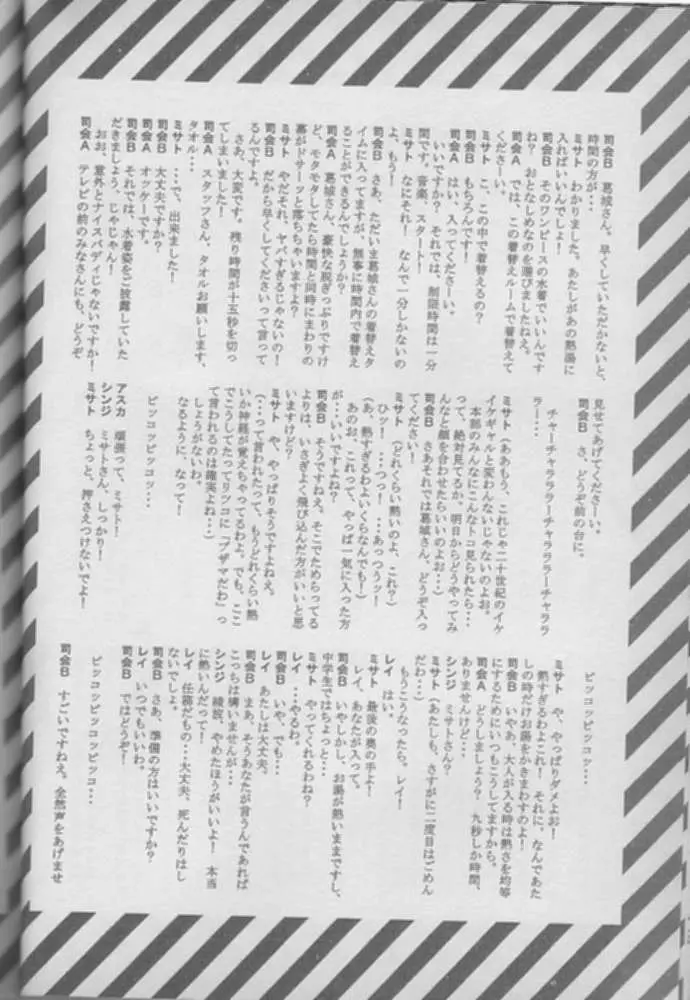 司会B　葛城さん。早くしていただかないと、
時間の方が…
ミサト　わかりました。あたしがあの熱湯に
入ればいいんでしょ！
司会B　そのワンピースの水着でいいんです
ね？　おとなしめなのを選びましたねえ。
司会A　では、この着替えルームで着替えて
くださーい。
ミサト　こ、この中で着替えるの？
司会B　もちろんです！
司会A　はい、入ってください。
いいですか？　それでは、制限時間は一分
間です。音楽、スタート！
ミサト　なにそれ！　なんで一分しかないの
よ、もう！
司会B　さあ、ただいま葛城さんの着替えタ
イムに入ってますが、無事に時間内で着替え
ることができるんでしょうか？
司会A　葛城さん、豪快な脱ぎっぷりですけ
ど、モタモタしてたら時間と同時にまわりの
幕がドサーッと落ちちゃいますよ？
ミサト　やだそれ、ヤバすぎるじゃないの！
司会B　だから早くしてくださいって言って
るんですよ。
さあ、大変です。残り時間が十五秒を切っ
てしまいました！
司会A　スタッフさん、タオルお願いします、
タオル…
ミサト　…で、出来ました！
司会B　大丈夫ですか？
司会A　オッケーです。
司会B　それでは、水着姿をご披露していた
だきましょう、じゃじゃん！
おお、意外とナイスバディじゃないですか！
司会A　テレビの前のみなさんにも、どうぞ
見せてあげてくださーい。
司会B　さ、どうぞ前の台に。
チャーチャララララーチャララララーチャララ
ラー…
ミサト（ああもう、これじゃ二十世紀のイケ
イケギャルと変わんないじゃないのよお。
本部のみんなにこんなトコ見られたら…
って、絶対見てるか、明日からどうやってみ
んなと顔を合わせたらいいのよお…）
司会B　さあそれでは葛城さん、どうぞ入っ
てください！
ミサト（どれくらい熱いのよ、これ？）
ひッ！　…つっ！　…あっつうッ！
（あ、熱すぎるわよいくらなんでも！）
あのお、これって、やっぱ一気に入った方
が…いいですよね？
司会B　そうですねえ。そこでためらってる
よりは、いさぎよく飛び込んだ方がいいと思
いますけど？
ミサト　や、やっぱりそうですよねえ。
（…って言われたって、もうどれくらい熱
いか神経が覚えちゃってるわよ。でも、ここ
でこうしてたってリツコに「ブザマだわ」っ
て言われるのは確実よね…）
しょうがないわ。
なるように、なって！
ピッコッピッコッ…
アスカ　頑張って、ミサト！
シンジ　ミサトさん、しっかり！
ミサト　ちょっと、押さえつけないでよ！
ピッコッピッコッ…
ミサト　や、やっぱりダメよお！
熱すぎるわよこれ！　それに、なんであた
しの時だけお湯をかきまわすのよ！
司会B　いやあ、大人が入る時は熱さを均等
にするためにいつもこうしてますから。
司会A　どうしましょう？　九秒しか時間、
ありませんけど…
シンジ　ミサトさん？
ミサト（あたしも、さすがに二度目はごめん
だわ…）
もうこうなったら、レイ！
レイ　はい。
ミサト　最後の奥の手よ！
レイ、あなたが入って。
司会B　いやしかし、お湯が熱いままですし、
中学生ではちょっと…
ミサト　やってくれるわね？
レイ　…やるわ。
司会B　いや、でも…
レイ　あたしは大丈夫。
司会B　まあ、そうあなたが言うんであれば
こっちは構いませんが…
シンジ　綾波、やめたほうがいいよ！　本当
に熱いんだって！
レイ　任務だもの…大丈夫、死んだりはし
ないでしょ。
司会B　さあ、準備の方はいいですか？
レイ　いつでもいいわ。
司会B　ではどうぞ！
ピッコッピッコッピッコ…
司会B　すごいですねえ。全然声をあげませ